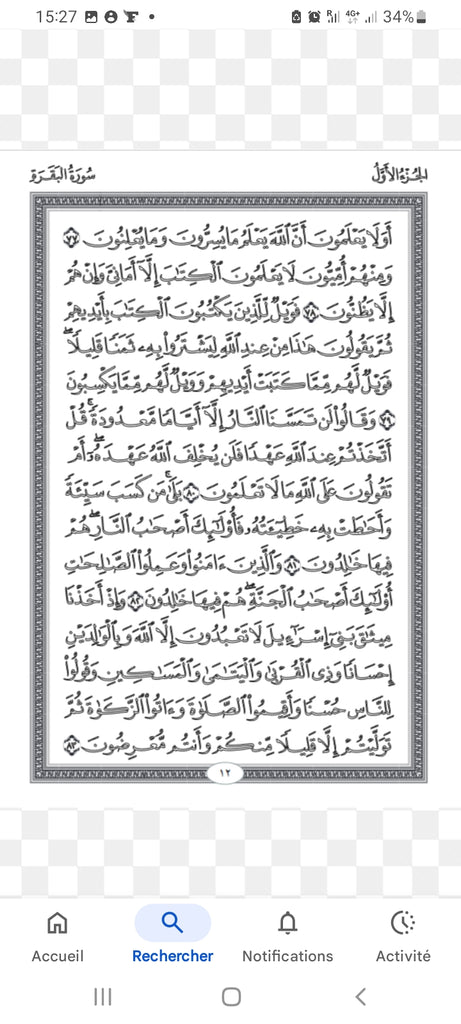 15:27
R 4G+ 34%
الجزء الأول
سورة البقرة
أَوَلَا يَعْلَمُونَ أَنَّ ٱللَّهَ يَعْلَمُ مَا يُسِرُّونَ وَمَا يُعْلِنُونَ ٧٧
وَمِنْهُمْ أُمِّيُّونَ لَا يَعْلَمُونَ ٱلْكِتَٰبَ إِلَّآ أَمَانِىَّ وَإِنْ هُمْ
إِلَّا يَظُنُّونَ ٧٨ فَوَيْلٌ لِّلَّذِينَ يَكْتُبُونَ ٱلْكِتَٰبَ بِأَيْدِيهِمْ
ثُمَّ يَقُولُونَ هَٰذَا مِنْ عِندِ ٱللَّهِ لِيَشْتَرُوا۟ بِهِۦ ثَمَنًا قَلِيلًا ۖ
فَوَيْلٌ لَّهُم مِّمَّا كَتَبَتْ أَيْدِيهِمْ وَوَيْلٌ لَّهُم مِّمَّا يَكْسِبُونَ
٧٩ وَقَالُوا۟ لَن تَمَسَّنَا ٱلنَّارُ إِلَّآ أَيَّامًا مَّعْدُودَةً ۚ قُلْ
أَتَّخَذْتُمْ عِندَ ٱللَّهِ عَهْدًا فَلَن يُخْلِفَ ٱللَّهُ عَهْدَهُۥٓ ۖ أَمْ
تَقُولُونَ عَلَى ٱللَّهِ مَا لَا تَعْلَمُونَ ٨٠ بَلَىٰ ۚ مَن كَسَبَ سَيِّئَةً
وَأَحَٰطَتْ بِهِۦ خَطِيٓـَٔتُهُۥ فَأُو۟لَٰٓئِكَ أَصْحَٰبُ ٱلنَّارِ ۖ هُمْ
فِيهَا خَٰلِدُونَ ٨١ وَٱلَّذِينَ ءَامَنُوا۟ وَعَمِلُوا۟ ٱلصَّٰلِحَٰتِ
أُو۟لَٰٓئِكَ أَصْحَٰبُ ٱلْجَنَّةِ ۖ هُمْ فِيهَا خَٰلِدُونَ ٨٢ وَإِذْ أَخَذْنَا
مِيثَٰقَ بَنِىٓ إِسْرَٰٓءِيلَ لَا تَعْبُدُونَ إِلَّا ٱللَّهَ وَبِٱلْوَٰلِدَيْنِ
إِحْسَانًا وَذِى ٱلْقُرْبَىٰ وَٱلْيَتَٰمَىٰ وَٱلْمَسَٰكِينِ وَقُولُوا۟
لِلنَّاسِ حُسْنًا وَأَقِيمُوا۟ ٱلصَّلَوٰةَ وَءَاتُوا۟ ٱلزَّكَوٰةَ ثُمَّ
تَوَلَّيْتُمْ إِلَّا قَلِيلًا مِّنكُمْ وَأَنتُم مُّعْرِضُونَ ٨٣
١٢
Accueil
Rechercher
Notifications
Activité